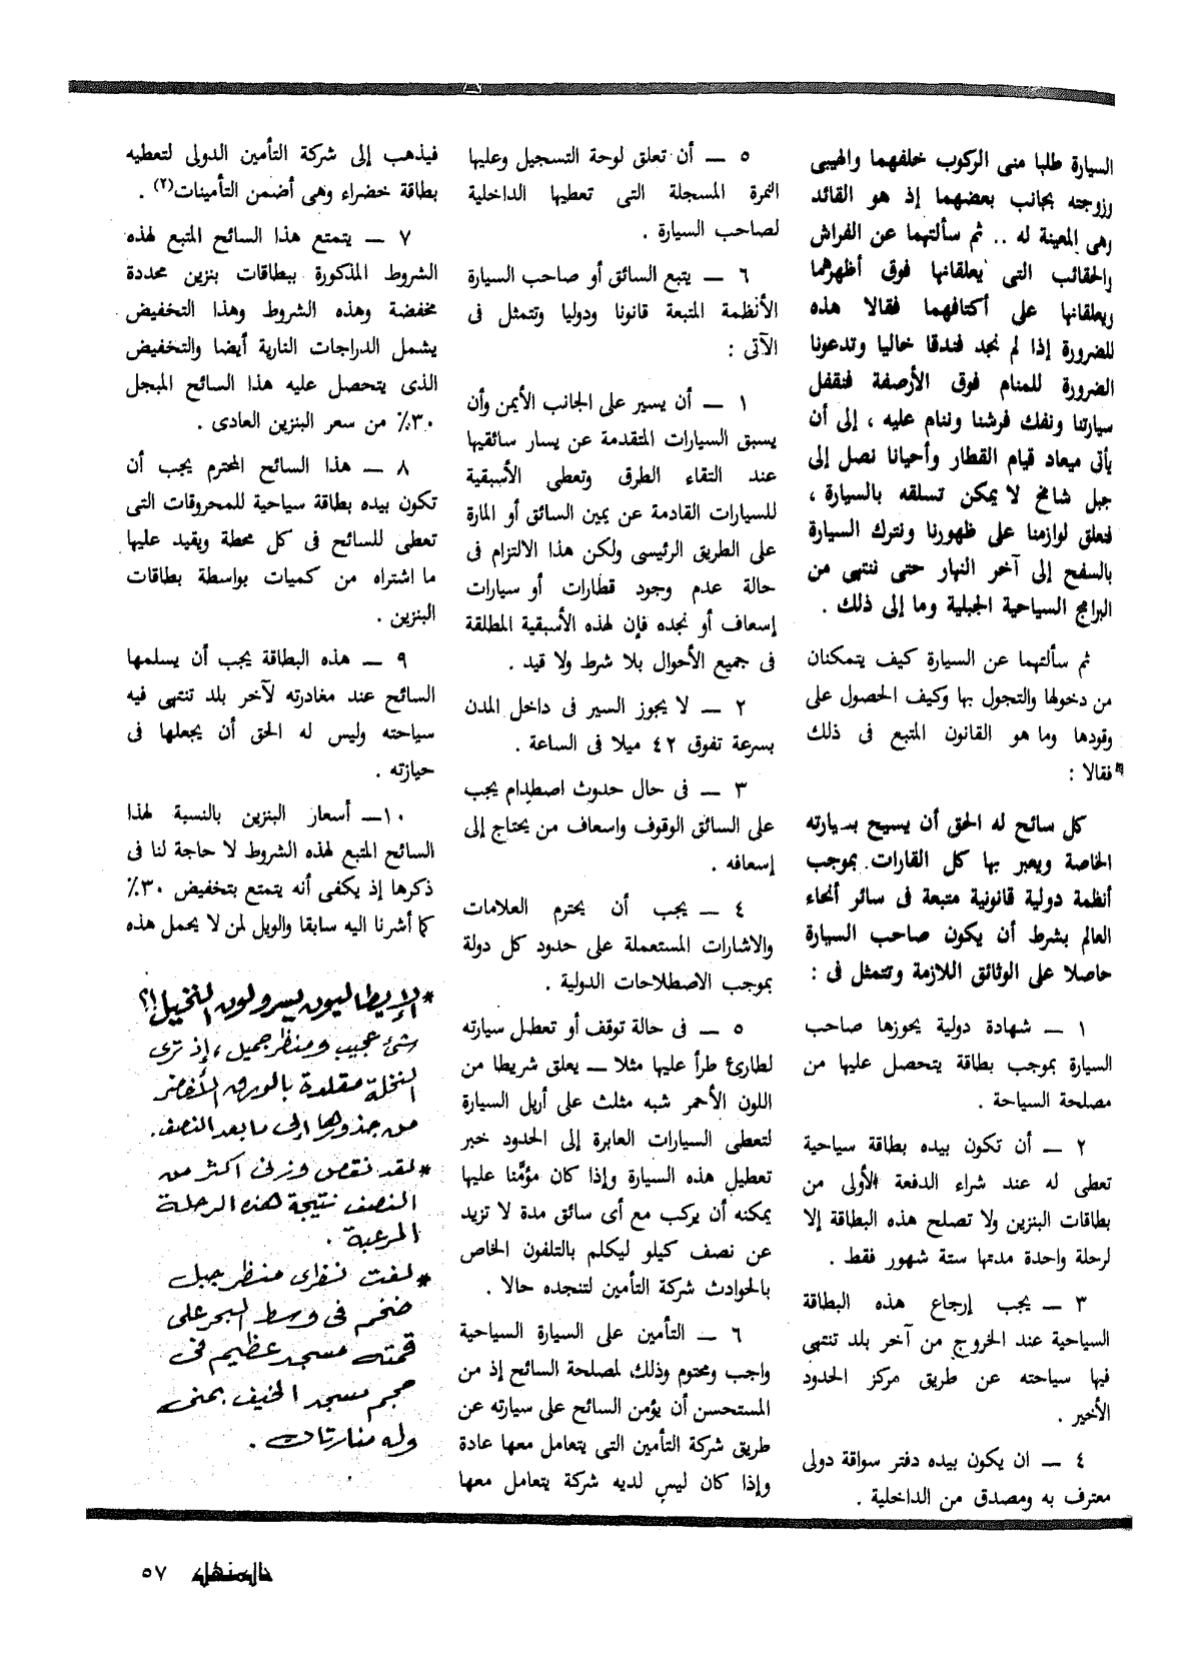 السيارة طلبا منى الركوب خلفهما والهيبى
وزوجته بجانب بعضهما إذ هو القائد
وهى المعينة له .. ثم سألتهما عن الفراش
والحقائب التى يعلقانها فوق أظهرهما
ويعلقانها على أكتافهما فقالا هذه
للضرورة إذا لم نجد فندقا خاليا وتدعونا
الضرورة للمنام فوق الأرصفة فنقفل
سيارتنا ونفك فرشنا وننام عليه ، إلى أن
يأتى ميعاد قيام القطار وأحيانا نصل إلى
جبل شامخ لا يمكن تسلقه بالسيارة ،
فنعلق لوازمنا على ظهورنا ونترك السيارة
بالسفح إلى آخر النهار حتى ننتهى من
البرامج السياحية الجبلية وما إلى ذلك .
ثم سألتهما عن السيارة كيف يتمكنان
من دخولها والتجول بها وكيف الحصول على
وقودها وما هو القانون المتبع فى ذلك
فقالا :
كل سائح له الحق أن يسيح بسيارته
الخاصة ويعبر بها كل القارات بموجب
أنظمة دولية قانونية متبعة فى سائر أنحاء
العالم بشرط أن يكون صاحب السيارة
حاصلا على الوثائق اللازمة وتتمثل فى :
١ — شهادة دولية يحوزها صاحب
السيارة بموجب بطاقة يتحصل عليها من
مصلحة السياحة .
٢ — أن تكون بيده بطاقة سياحية
تعطى له عند شراء الدفعة الأولى من
بطاقات البنزين ولا تصلح هذه البطاقة إلا
لرحلة واحدة مدتها ستة شهور فقط .
٣ — يجب إرجاع هذه البطاقة
السياحية عند الخروج من آخر بلد تنتهى
فيها سياحته عن طريق مركز الحدود
الأخير .
٤ — ان يكون بيده دفتر سواقة دولى
معترف به ومصدق من الداخلية .
٥ — أن تعلق لوحة التسجيل وعليها
النمرة المسجلة التى تعطيها الداخلية
لصاحب السيارة .
٦ — يتبع السائق أو صاحب السيارة
الأنظمة المتبعة قانونا ودوليا وتتمثل فى
الآتى :
١ — أن يسير على الجانب الأيمن وأن
يسبق السيارات المتقدمة عن يسار سائقيها
عند التقاء الطرق وتعطى الأسبقية
للسيارات القادمة عن يمين السائق أو المارة
على الطريق الرئيسى ولكن هذا الالتزام فى
حالة عدم وجود قطارات أو سيارات
إسعاف أو نجده فإن لهذه الأسبقية المطلقة
فى جميع الأحوال بلا شرط ولا قيد .
٢ — لا يجوز السير فى داخل المدن
بسرعة تفوق ٤٢ ميلا فى الساعة .
٣ — فى حال حدوث اصطدام يجب
على السائق الوقوف واسعاف من يحتاج إلى
إسعافه .
٤ — يجب أن يحترم العلامات
والاشارات المستعملة على حدود كل دولة
بموجب الاصطلاحات الدولية .
٥ — فى حالة توقف أو تعطل سيارته
لطارئ طرأ عليها مثلا — يعلق شريطا من
اللون الأحمر شبه مثلث على أريل السيارة
لتعطى السيارات العابرة إلى الحدود خبر
تعطيل هذه السيارة وإذا كان مؤمَّنا عليها
يمكنه أن يركب مع أى سائق مدة لا تزيد
عن نصف كيلو ليكلم بالتلفون الخاص
بالحوادث شركة التأمين لتنجده حالا .
٦ — التأمين على السيارة السياحية
واجب ومحتوم وذلك لمصلحة السائح إذ من
المستحسن أن يؤمن السائح على سيارته عن
طريق شركة التأمين التى يتعامل معها عادة
وإذا كان ليس لديه شركة يتعامل معها
فيذهب إلى شركة التأمين الدولى لتعطيه
بطاقة خضراء وهى أضمن التأمينات(٢) .
٧ — يتمتع هذا السائح المتبع لهذه
الشروط المذكورة ببطاقات بنزين محددة
مخفضة وهذه الشروط وهذا التخفيض
يشمل الدراجات النارية أيضا والتخفيض
الذى يتحصل عليه هذا السائح المبجل
٣٠٪ من سعر البنزين العادى .
٨ — هذا السائح المحترم يجب أن
تكون بيده بطاقة سياحية للمحروقات التى
تعطى للسائح فى كل محطة ويقيد عليها
ما اشتراه من كميات بواسطة بطاقات
البنزين .
٩ — هذه البطاقة يجب أن يسلمها
السائح عند مغادرته لآخر بلد تنتهى فيه
سياحته وليس له الحق أن يجعلها فى
حيازته .
١٠ — أسعار البنزين بالنسبة لهذا
السائح المتبع لهذه الشروط لا حاجة لنا فى
ذكرها إذ يكفى أنه يتمتع بتخفيض ٣٠٪
كما أشرنا اليه سابقا والويل لمن لا يحمل هذه
* الإيطاليون يسرولون النخيل !؟
شئ عجيب ومنظر جميل ، إذ ترى
النخلة مقلدة بالورق الأخضر
من جذورها إلى ما بعد النصف .
* لقد نقص وزنى اكثر من
النصف نتيجة هذه الرحلة
المرعبة .
* لفت نظرى منظر جبل
ضخم فى وسط البحر على
قمته مسجد عظيم فى
حجم مسجد الخيف بمنى
وله منارتان .
المنهل ٥٧